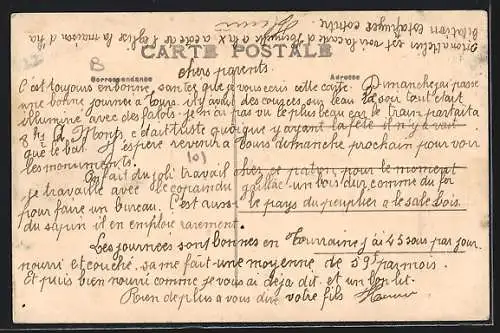 CARTE POSTALE
Correspondance
Adresse
chers parents
C'est toujours en bonne santée que je vous ecris cette carte. Dimanche j'ai passé
une bonne journee a Tours. il y avait des courses sur l'eau le soir tout était
illumine avec des falots. je n'ai pas vu le plus beau car le train partait a
8 h ½ la Noce c'était juste quoique y ayant la fête il n'y avait
que le bal. J'espere revenir a Tours dimanche prochain pour voir
les monuments.
On fait du joli travail chez ce patron, pour le moment
je travaille avec le copain du gaillac un bois dur comme du fer
pour faire un bureau. C'est aussi le pays du peuplier a le sale bois.
du sapin il en emploie rarement.
Les journées sont bonnes en Tourraine j'ai 45 sous par jour
nourri et couché. sa me fait une moyenne de 59f par mois.
Et puis bien nourri comme je vous ai deja dit. et un bon lit.
Rien de plus a vous dire votre fils